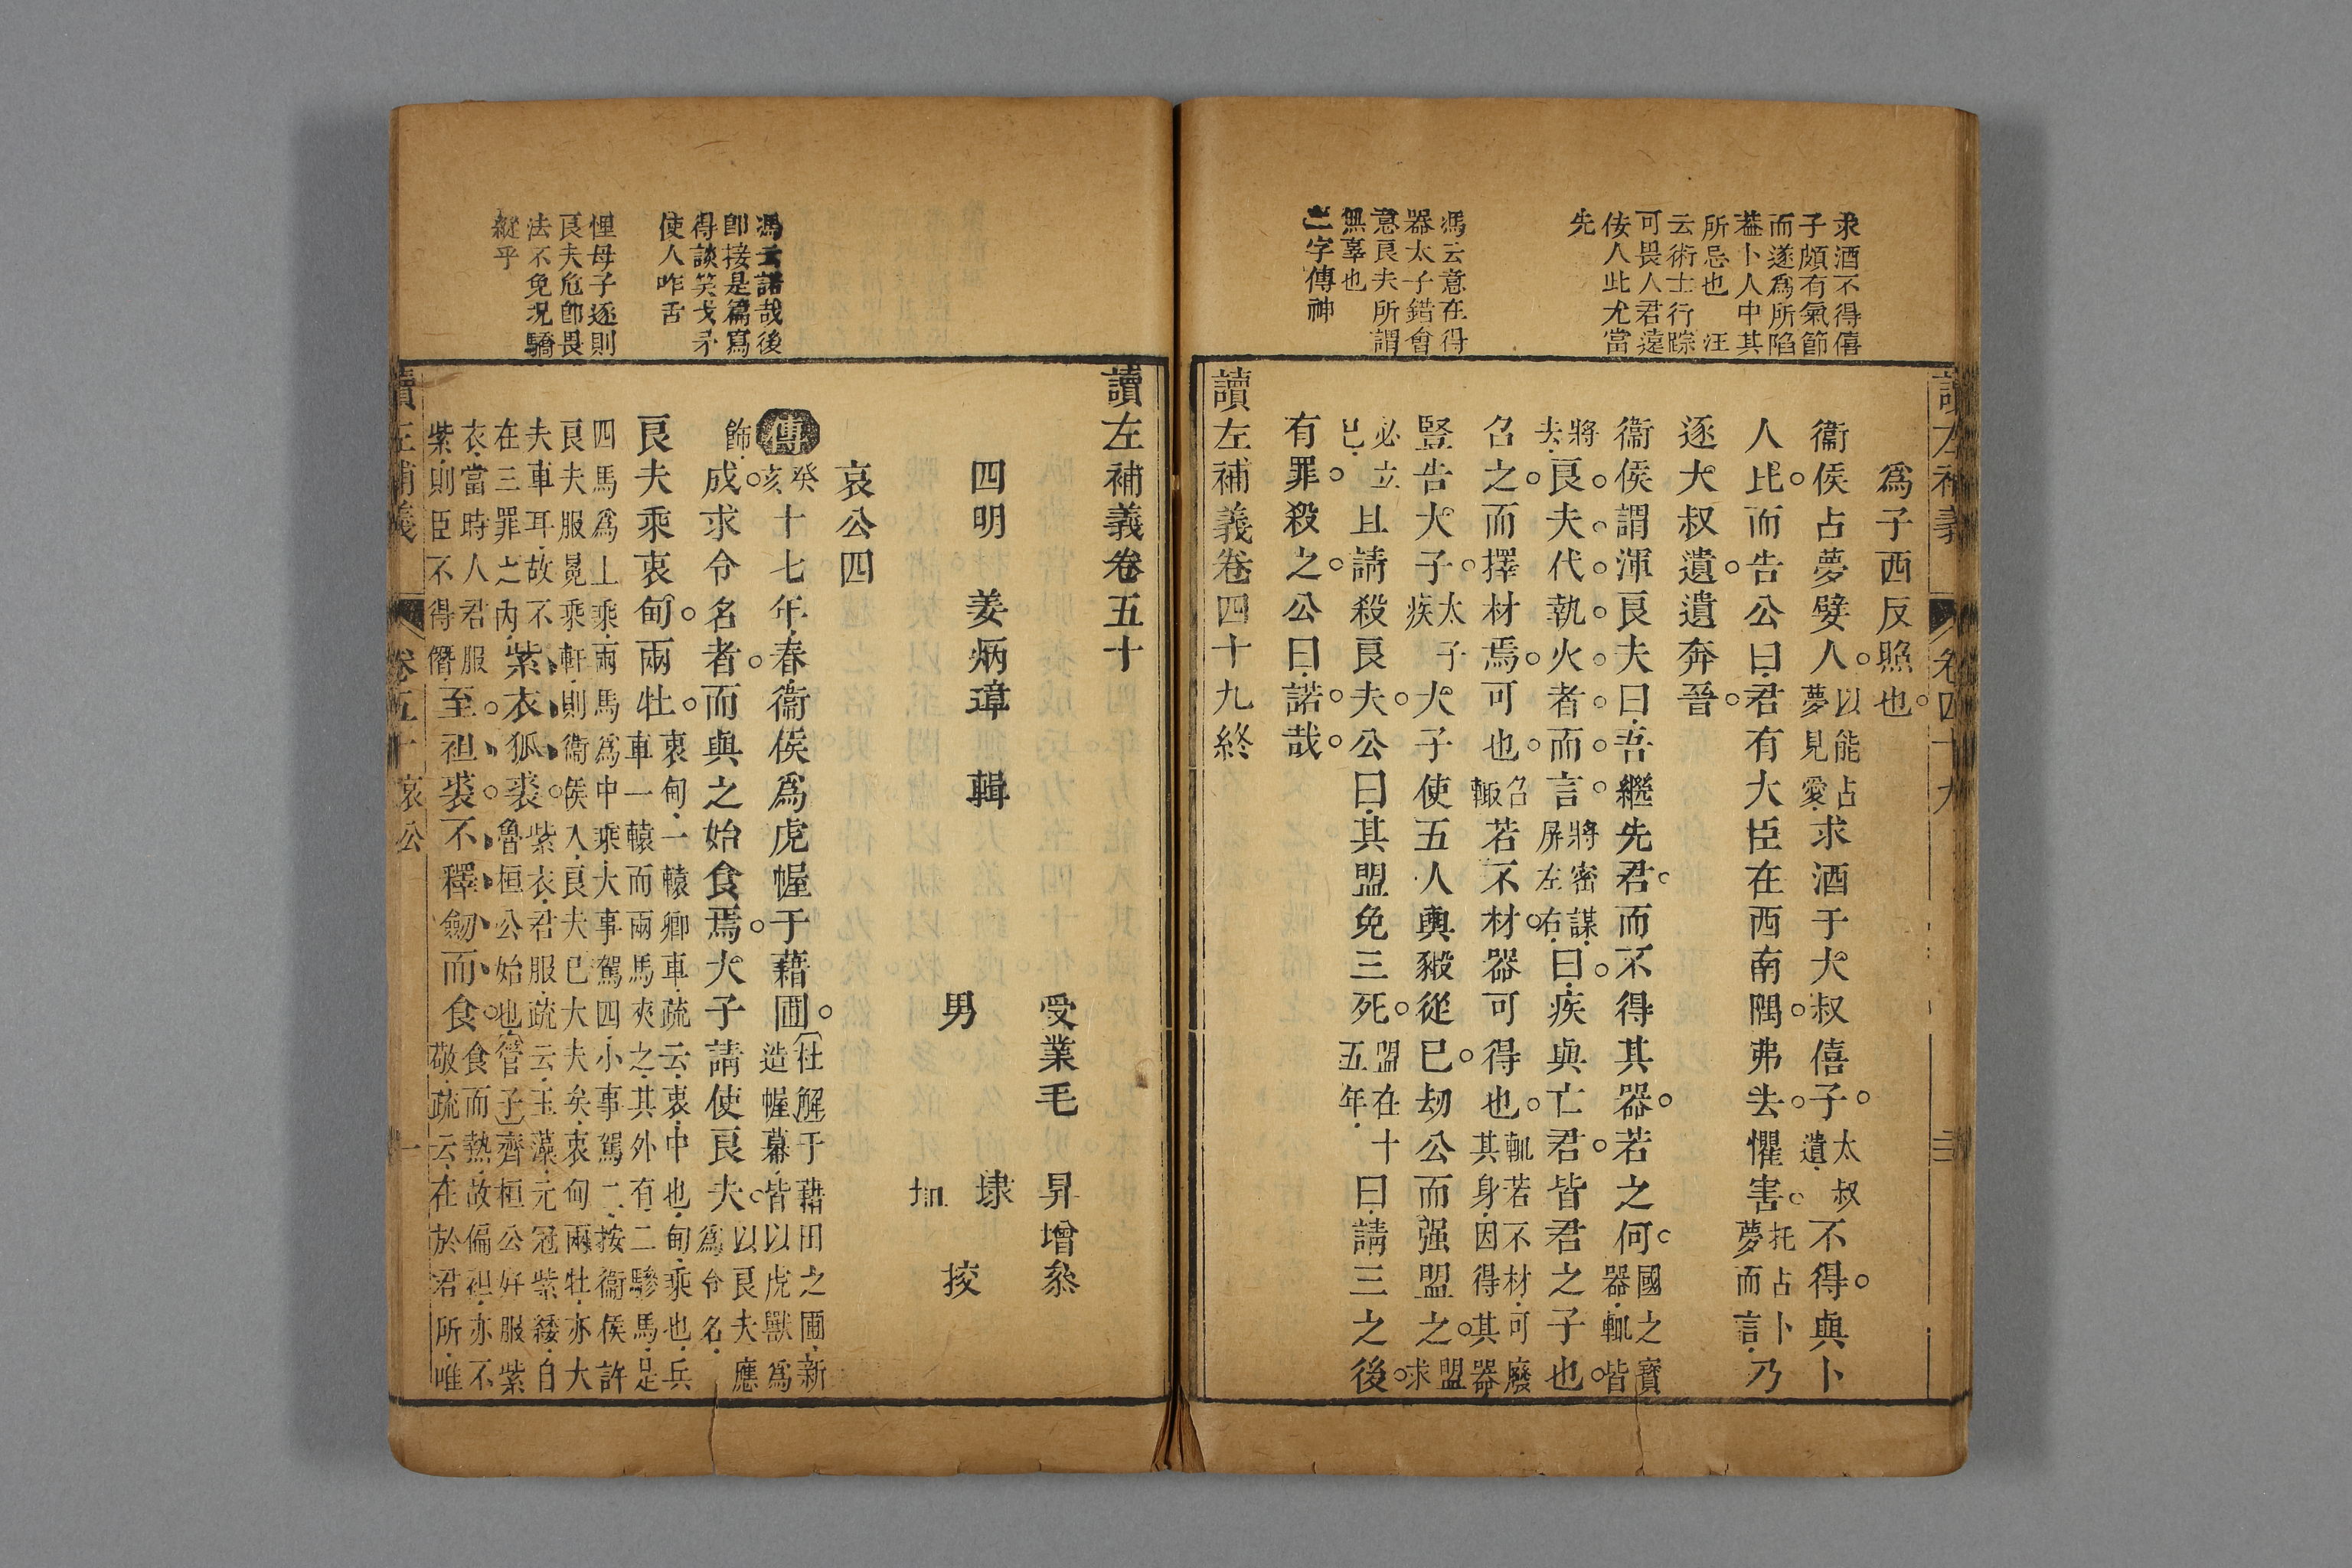 求酒不得僖
子頗有氣節
而遂爲所陷
葢卜人中其
所忌也　汪
云術士行踪
可畏人君遠
佞人此尤當
先
馮云意在得
器太子錯會
意良夫所謂
無辜也
三字傳神
爲子西反照也
衞侯占夢嬖人以能占夢見愛求酒于大叔僖子太叔遺不得與卜
人比而告公曰君有大臣在西南隅弗去懼害托占卜夢而言乃
逐大叔遺遺奔晉
衞侯謂渾良夫曰吾繼先君而不得其器若之何國之寶器輒皆
將去良夫代執火者而言將密謀屏左右曰疾與亡君皆君之子也
召之而擇材焉可也召輒若不材器可得也輒若不材可廢其身因得其器
豎告大子太子疾大子使五人輿豭從已劫公而强盟之盟求
必立已且請殺良夫公曰其盟免三死盟在十五年曰請三之後
有罪殺之公曰諾哉
讀左補義卷四十九終
馮云諾哉後
卽接是篇寫
得談笑戈矛
使人咋舌
悝母子逐則
良夫危卽畏
法不免況驕
縱乎
讀左補義卷五十
受業毛　昇增叅
四明　姜炳璋　輯
男　埭　𡊠　挍
哀公四
傳癸亥十七年春衞侯爲虎幄于藉圃杜解于藉田之圃新造幄幕皆以虎獸爲
飾成求令名者而與之始食焉大子請使良夫以良夫應爲令名
良夫乘衷甸兩牡衷甸一轅卿車疏云衷中也甸乘也兵車一轅而兩馬夾之其外有二驂馬足
四馬爲上乘兩馬爲中乘大事駕四小事駕二按衞侯許
良夫服冕乘軒則衞侯入良夫已大夫矣衷甸兩牡亦大
夫車耳故不在三罪之內紫衣狐裘紫衣君服疏云玉藻元冠紫緌自魯桓公始也管子齊桓公好服紫
衣當時人君服紫則臣不得僭至袒裘不釋劒而食食而熱故偏袒亦不敬疏云在於君所唯
讀左補義　卷五十哀公　一